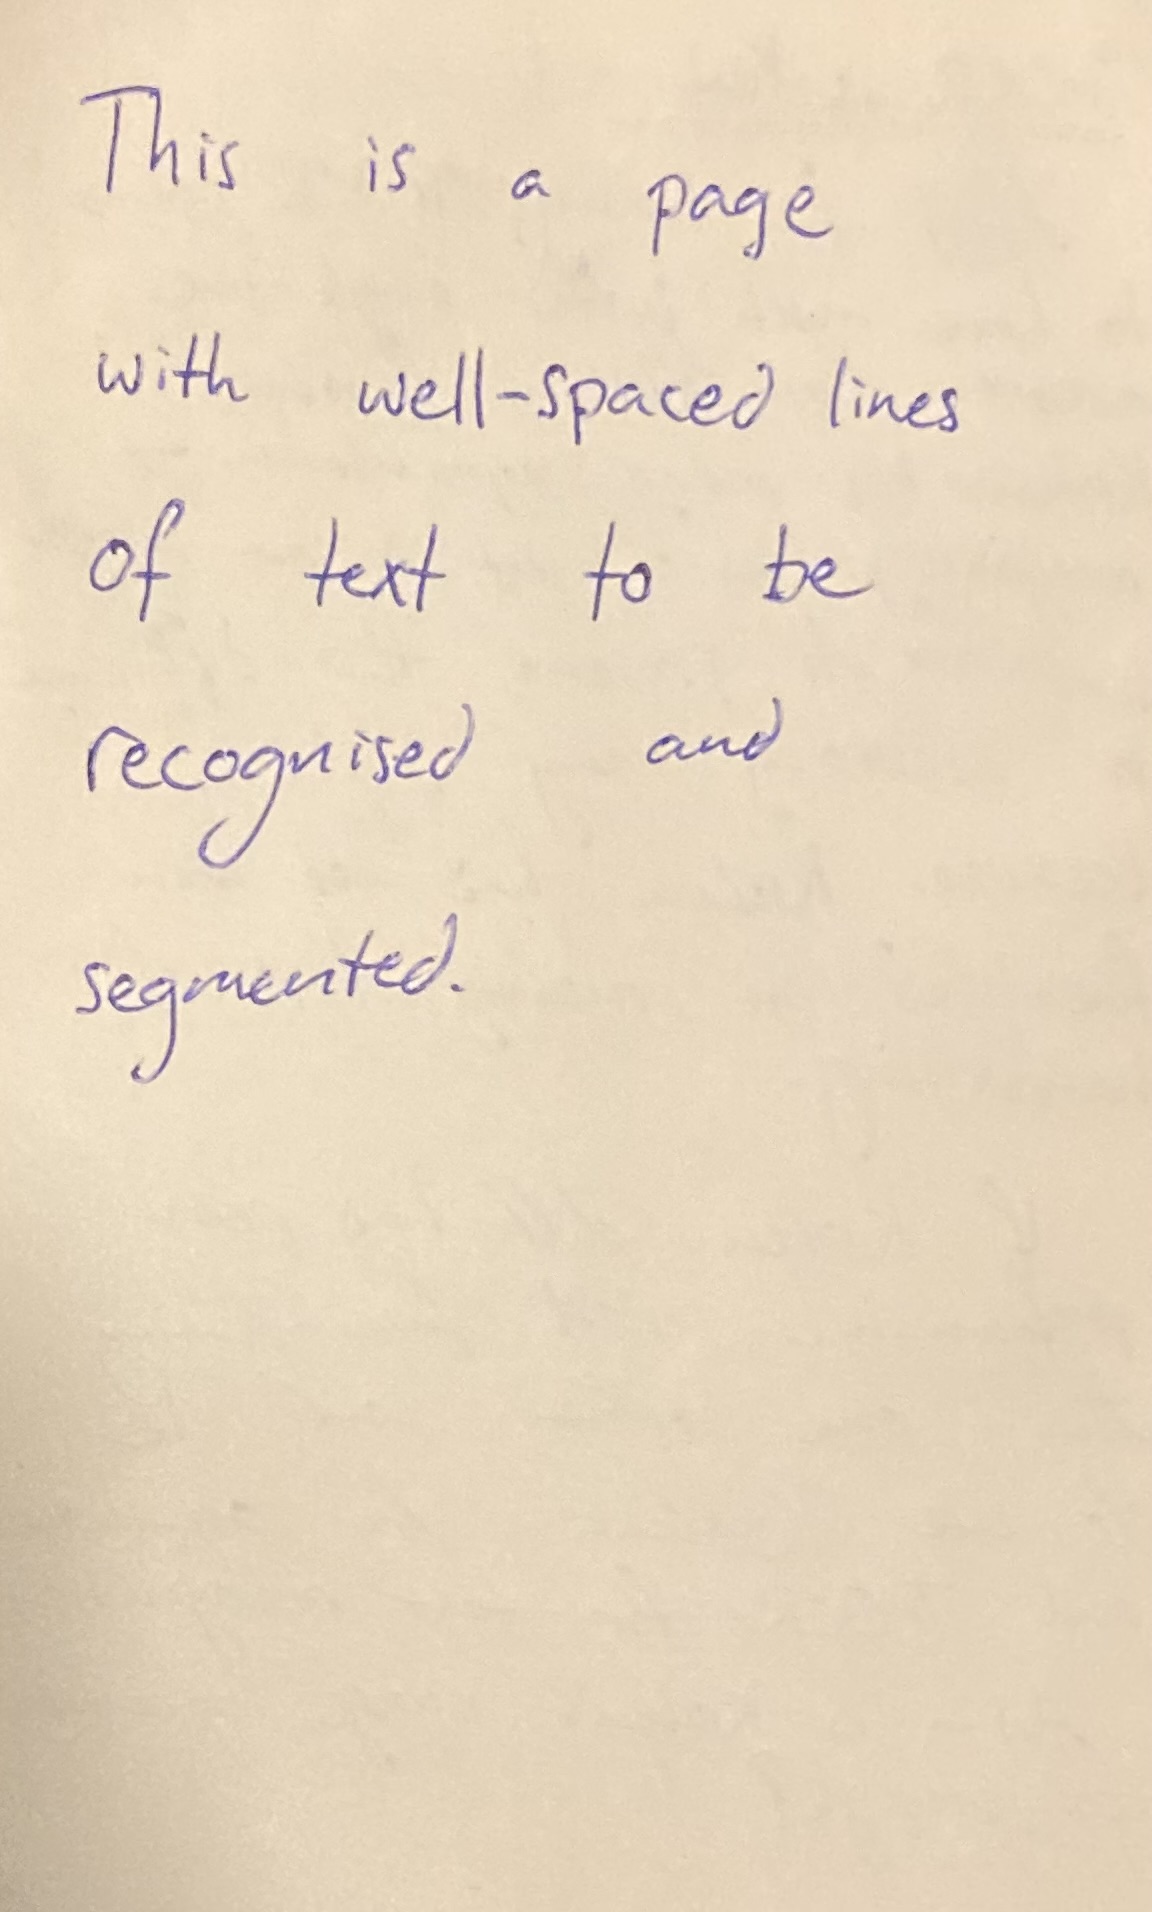 This is a page
with well-spaced lines
of text to be
recognised and
segmented.